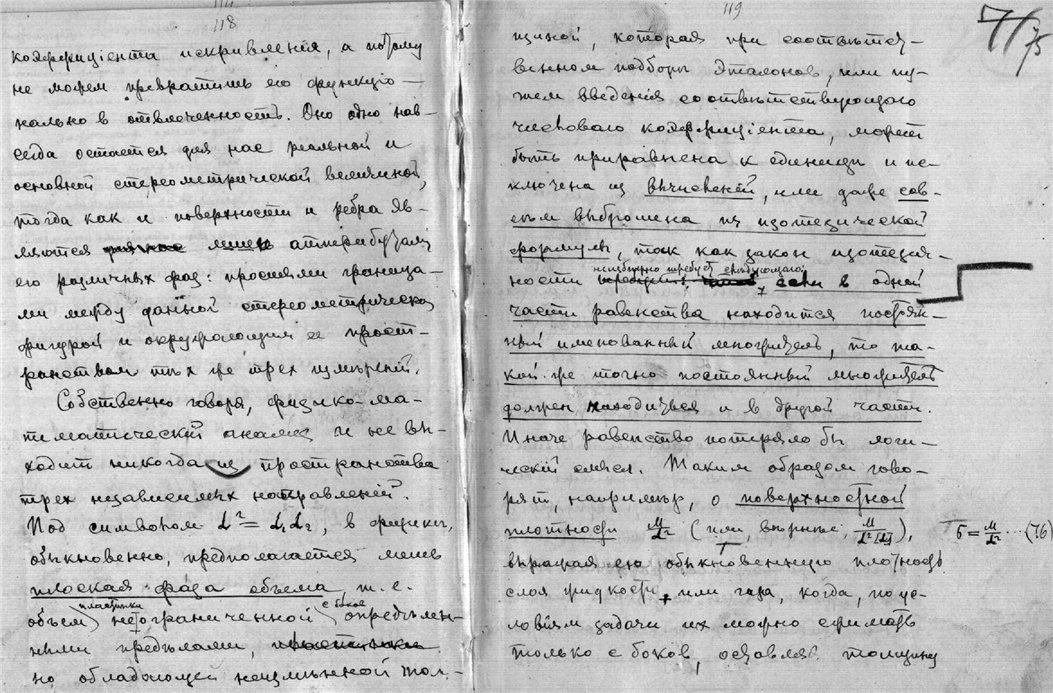 118
коэффиціента искривленія, а потому
не можем превратить его функціо-
нально в отвлеченность. Оно одно нав-
сегда остается для нас реальной и
основной стереометрической величиной,
тогда как и поверхности и ребра яв-
ляются лишь аттрибутами
его различных фаз: простыми граница-
ми между данной стереометрическою
фигурой и окружающим ее прост-
ранством тѣх же трех измѣреній.
Собственно говоря, физико-ма-
тематическій анализ и не вы-
ходит никогда из пространства
трех независимых направленій.
Под символом L² = L₁L₂, в физикѣ,
обыкновенно, предполагается лишь
плоская фаза объема т. е.
объем пластинки неограниченной с боков опредѣлен-
ными предѣлами,
но обладающей неизмѣнной тол-
119
щиной, которая при соотвѣтст-
венном подборѣ эталонов, или пу-
тем введенія соотвѣтствующаго
числоваго коэффиціента, может
быть приравнена к единицѣ и ис-
ключена из вычисленій, или даже сов-
сѣм выброшена из изотезической
формулы, так как закон изотезич-
ности неизбѣжно требует слѣдующаго: если в одной
части равенства находится постоян-
ный именованный множитель, то та-
кой-же точно постоянный множитель
должен находиться и в другой части.
Иначе равенство потеряло бы логи-
ческій смысл. Таким образом гово-
рят, напримѣр, о поверхностной
плотности M/L² (или, вѣрнѣе, M/L²[L₁]), б = M/L² ... (76)
выражая ею обыкновенную плотность
слоя жидкости, или газа, когда, по ус-
ловіям задачи их можно сжимать
только с боков, оставляя толщину